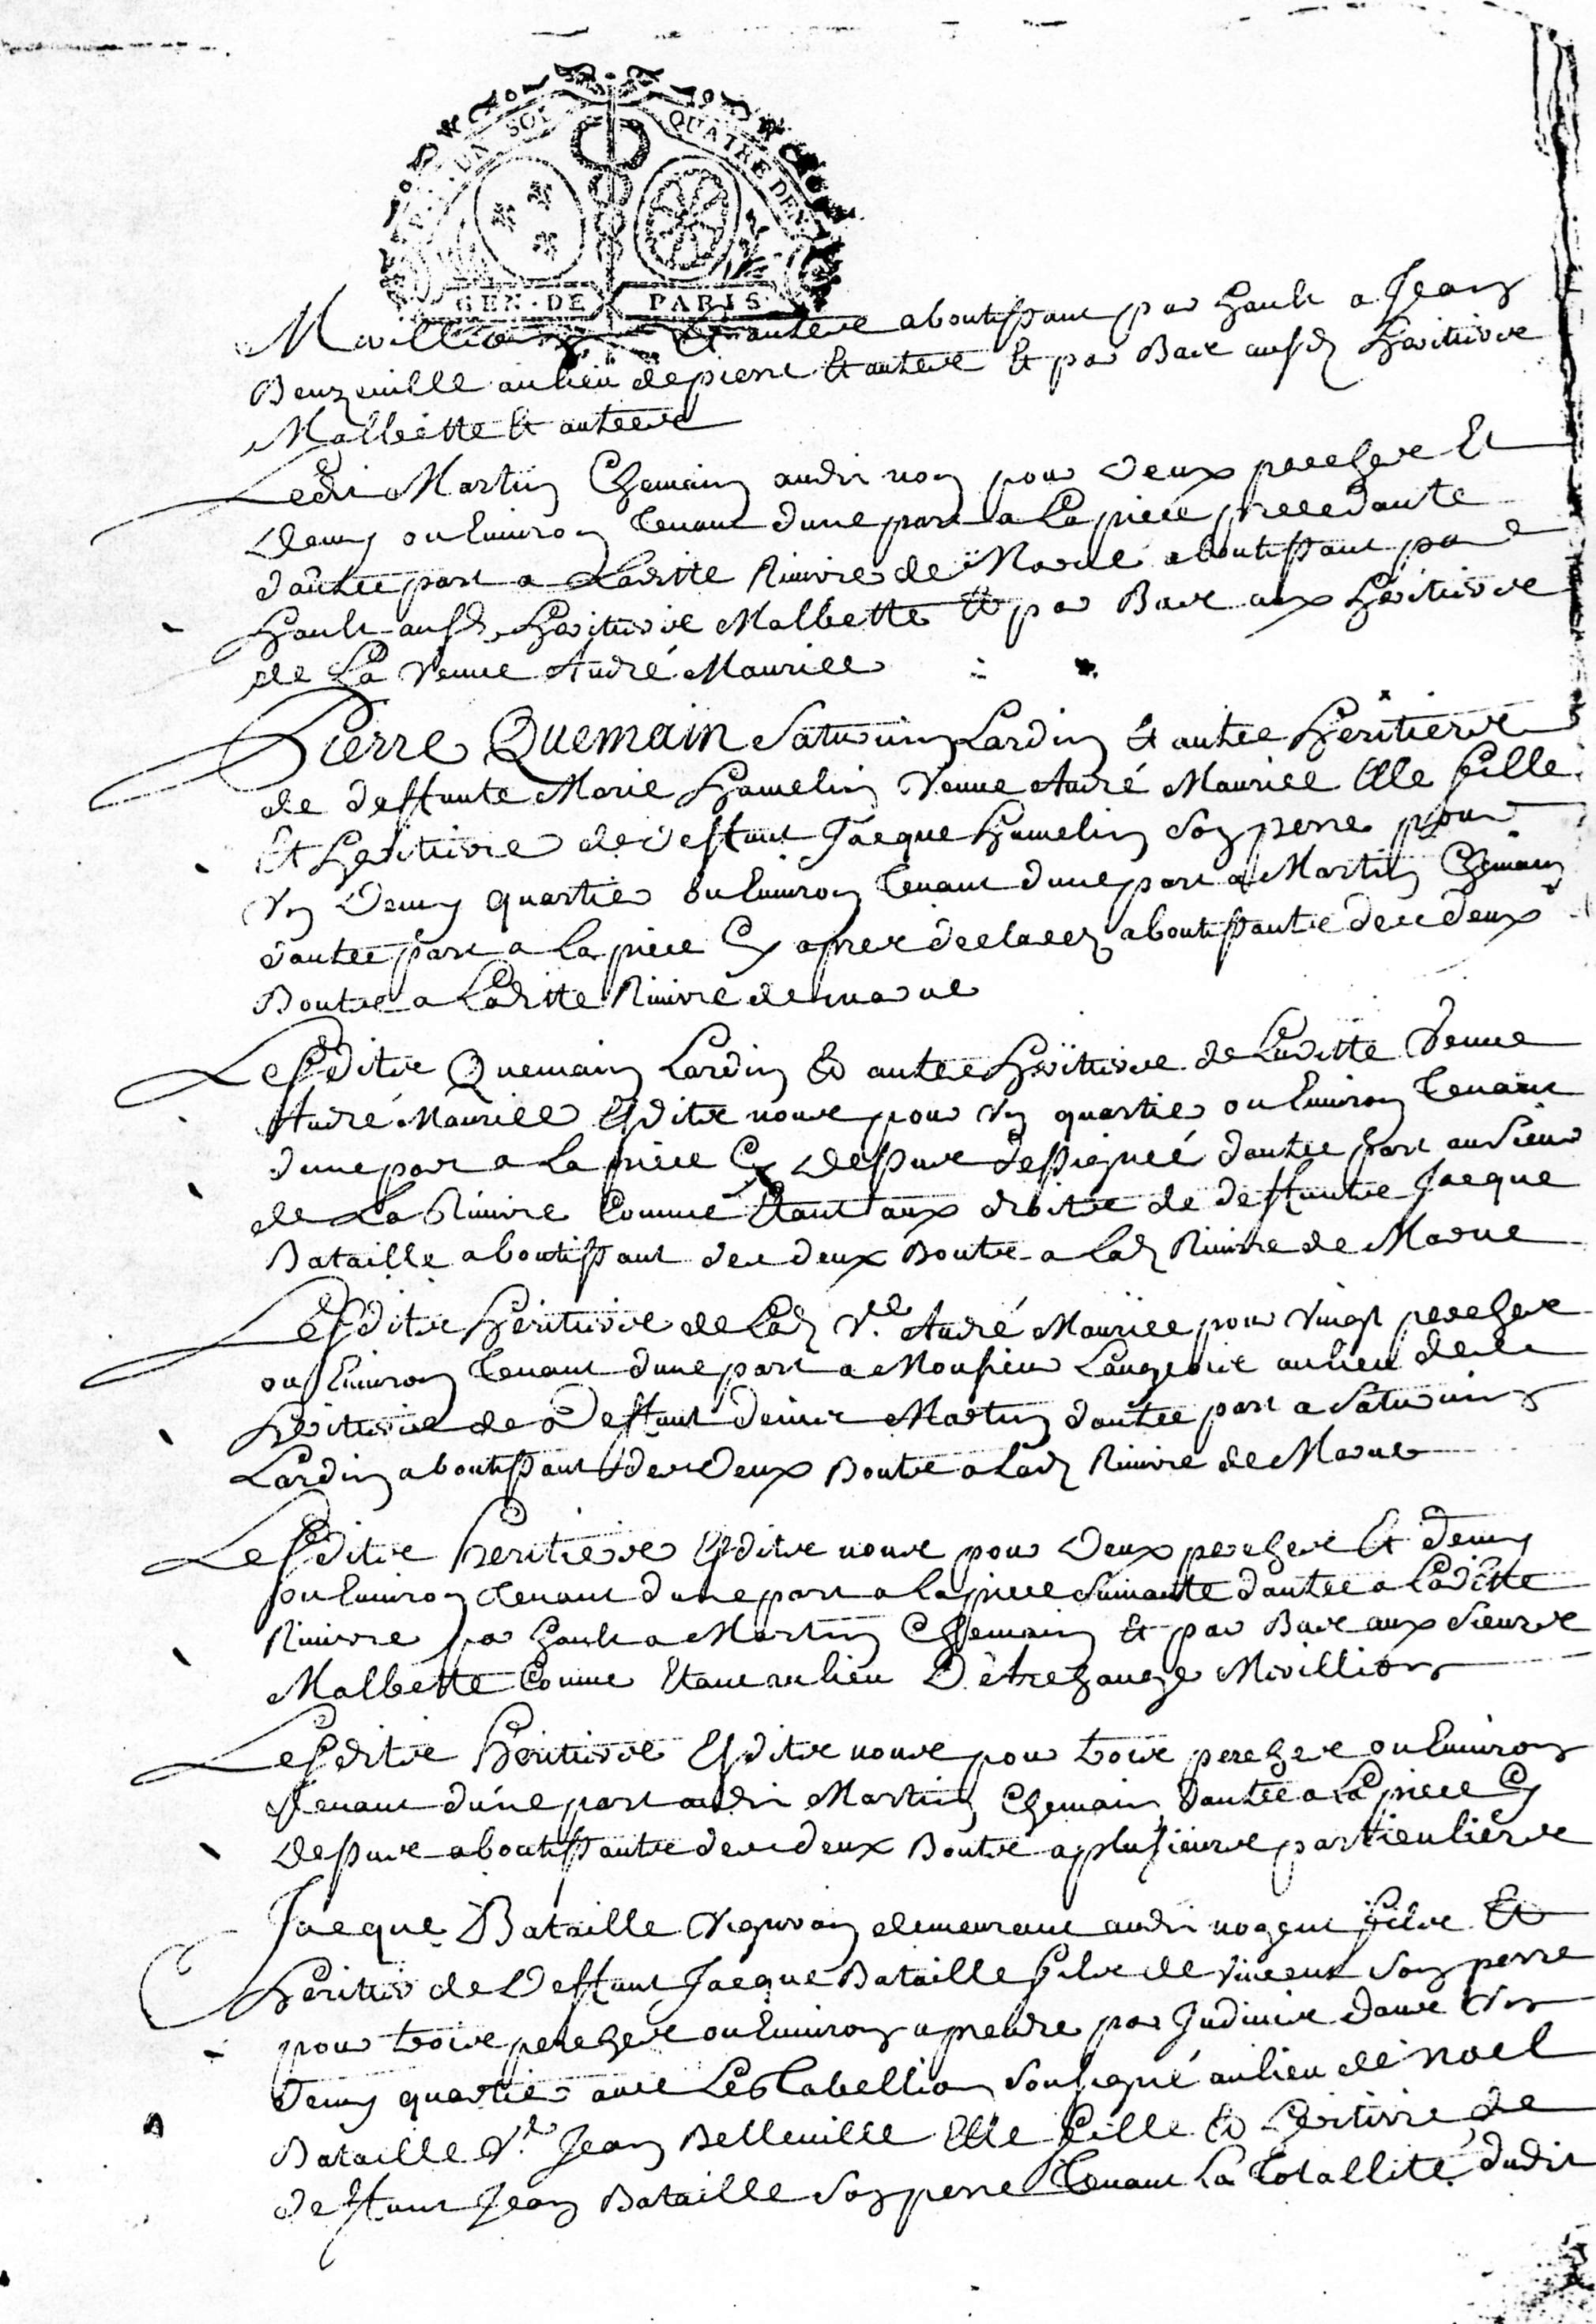 UN SOL QUATRE DEN
GEN · DE PARIS
Mivillion Et autres aboutissant par hault a Jean
Beuzeville au lieu de pierre Et autres Et par Bas ausd heritiers
Malbette Et autres
Ledit Martin Chemain audit nom pour Deux perches Et
Demy ou Environ tenant d'une part a La piece precedante
d'autre part a Laditte Riviere de Marne aboutissant par
hault ausd heritiers Malbette Et par Bas aux heritiers
de La veuve André Mauriee
Pierre Quemain Saturnin Lardin Et autres heritiers
de deffunte Marie hamelin veuve André Mauriee Elle fille
Et heritiere de deffunt Jacque hamelin Son perre pour
Un Demy quartier ou Environ tenant d'une part a Martin Chemain
d'autre part a La piece Cy apres declarez aboutissante des deux
Boutes a Laditte Riviere de marne
Lesdites Quemain Lardin Et autres heritiers de Laditte Veuve
André Mauriee Esdites noms pour Un quartier ou Environ tenant
d'une part a La piece Cy Dessus dessignée d'autre part au Sieur
de La Riviere Comme Etant aux droites de deffunte Jacque
Bataille aboutissant des deux Boutes a Lad Riviere de Marne
Lesdites heritiers de Lad Ve André Mauriee pour vingt perches
ou Environ tenant d'une part a Monsieur Laugeois au lieu des
heritiers de Deffunt Denis Martin d'autre part a Saturnin
Lardin aboutissant des Deux Boutes a Lad Riviere de Marne
Lesdites heritiers Esdites noms pour Deux perches Et demy
ou Environ tenant d'une part a La piece Suivante d'autre a Laditte
Riviere par hault a Martin Chemain Et par Bas aux Sieurs
Malbette Comme Etant au lieu D'etrechange Mivillion
Lesdites heritiers Esdites noms pour trois perches ou Environ
tenant d'une part audit Martin Chemain d'autre a La piece Cy
Dessus aboutissante des deux Boutes a plusieurs particuliers
Jacque Bataille vigneron demeurant audit nogent fils Et
heritier de Deffunt Jacque Bataille fils de vincent Son perre
pour trois perches ou Environ a prendre par Judivis dans Un
Demy quartier avec Les Tabellion Soussigné au lieu de noel
Bataille Ve Jean Belleville Elle fille Et heritiere de
deffunt Jean Bataille Son perre tenant La totallité dudit